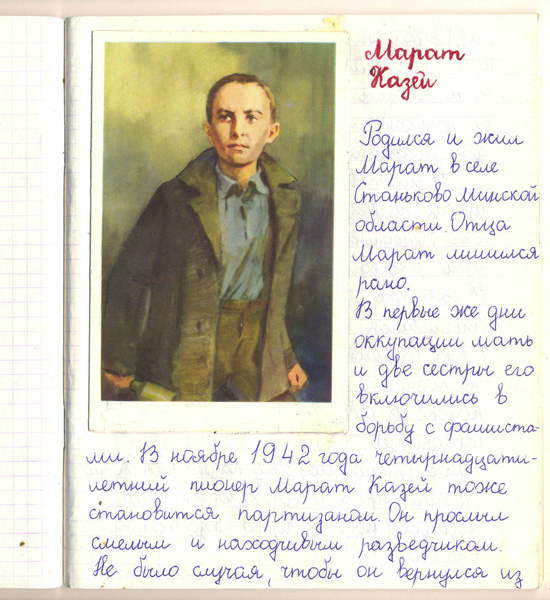 Марат
Казей
Родился и жил
Марат в селе
Станьково Минской
области. Отца
Марат лишился
рано.
В первые же дни
оккупации мать
и две сестры его
включились в
борьбу с фашиста-
ми. В ноябре 1942 года четырнадцати-
летний пионер Марат Казей тоже
становится партизаном. Он прослыл
смелым и находчивым разведчиком.
Не было случая, чтобы он вернулся из